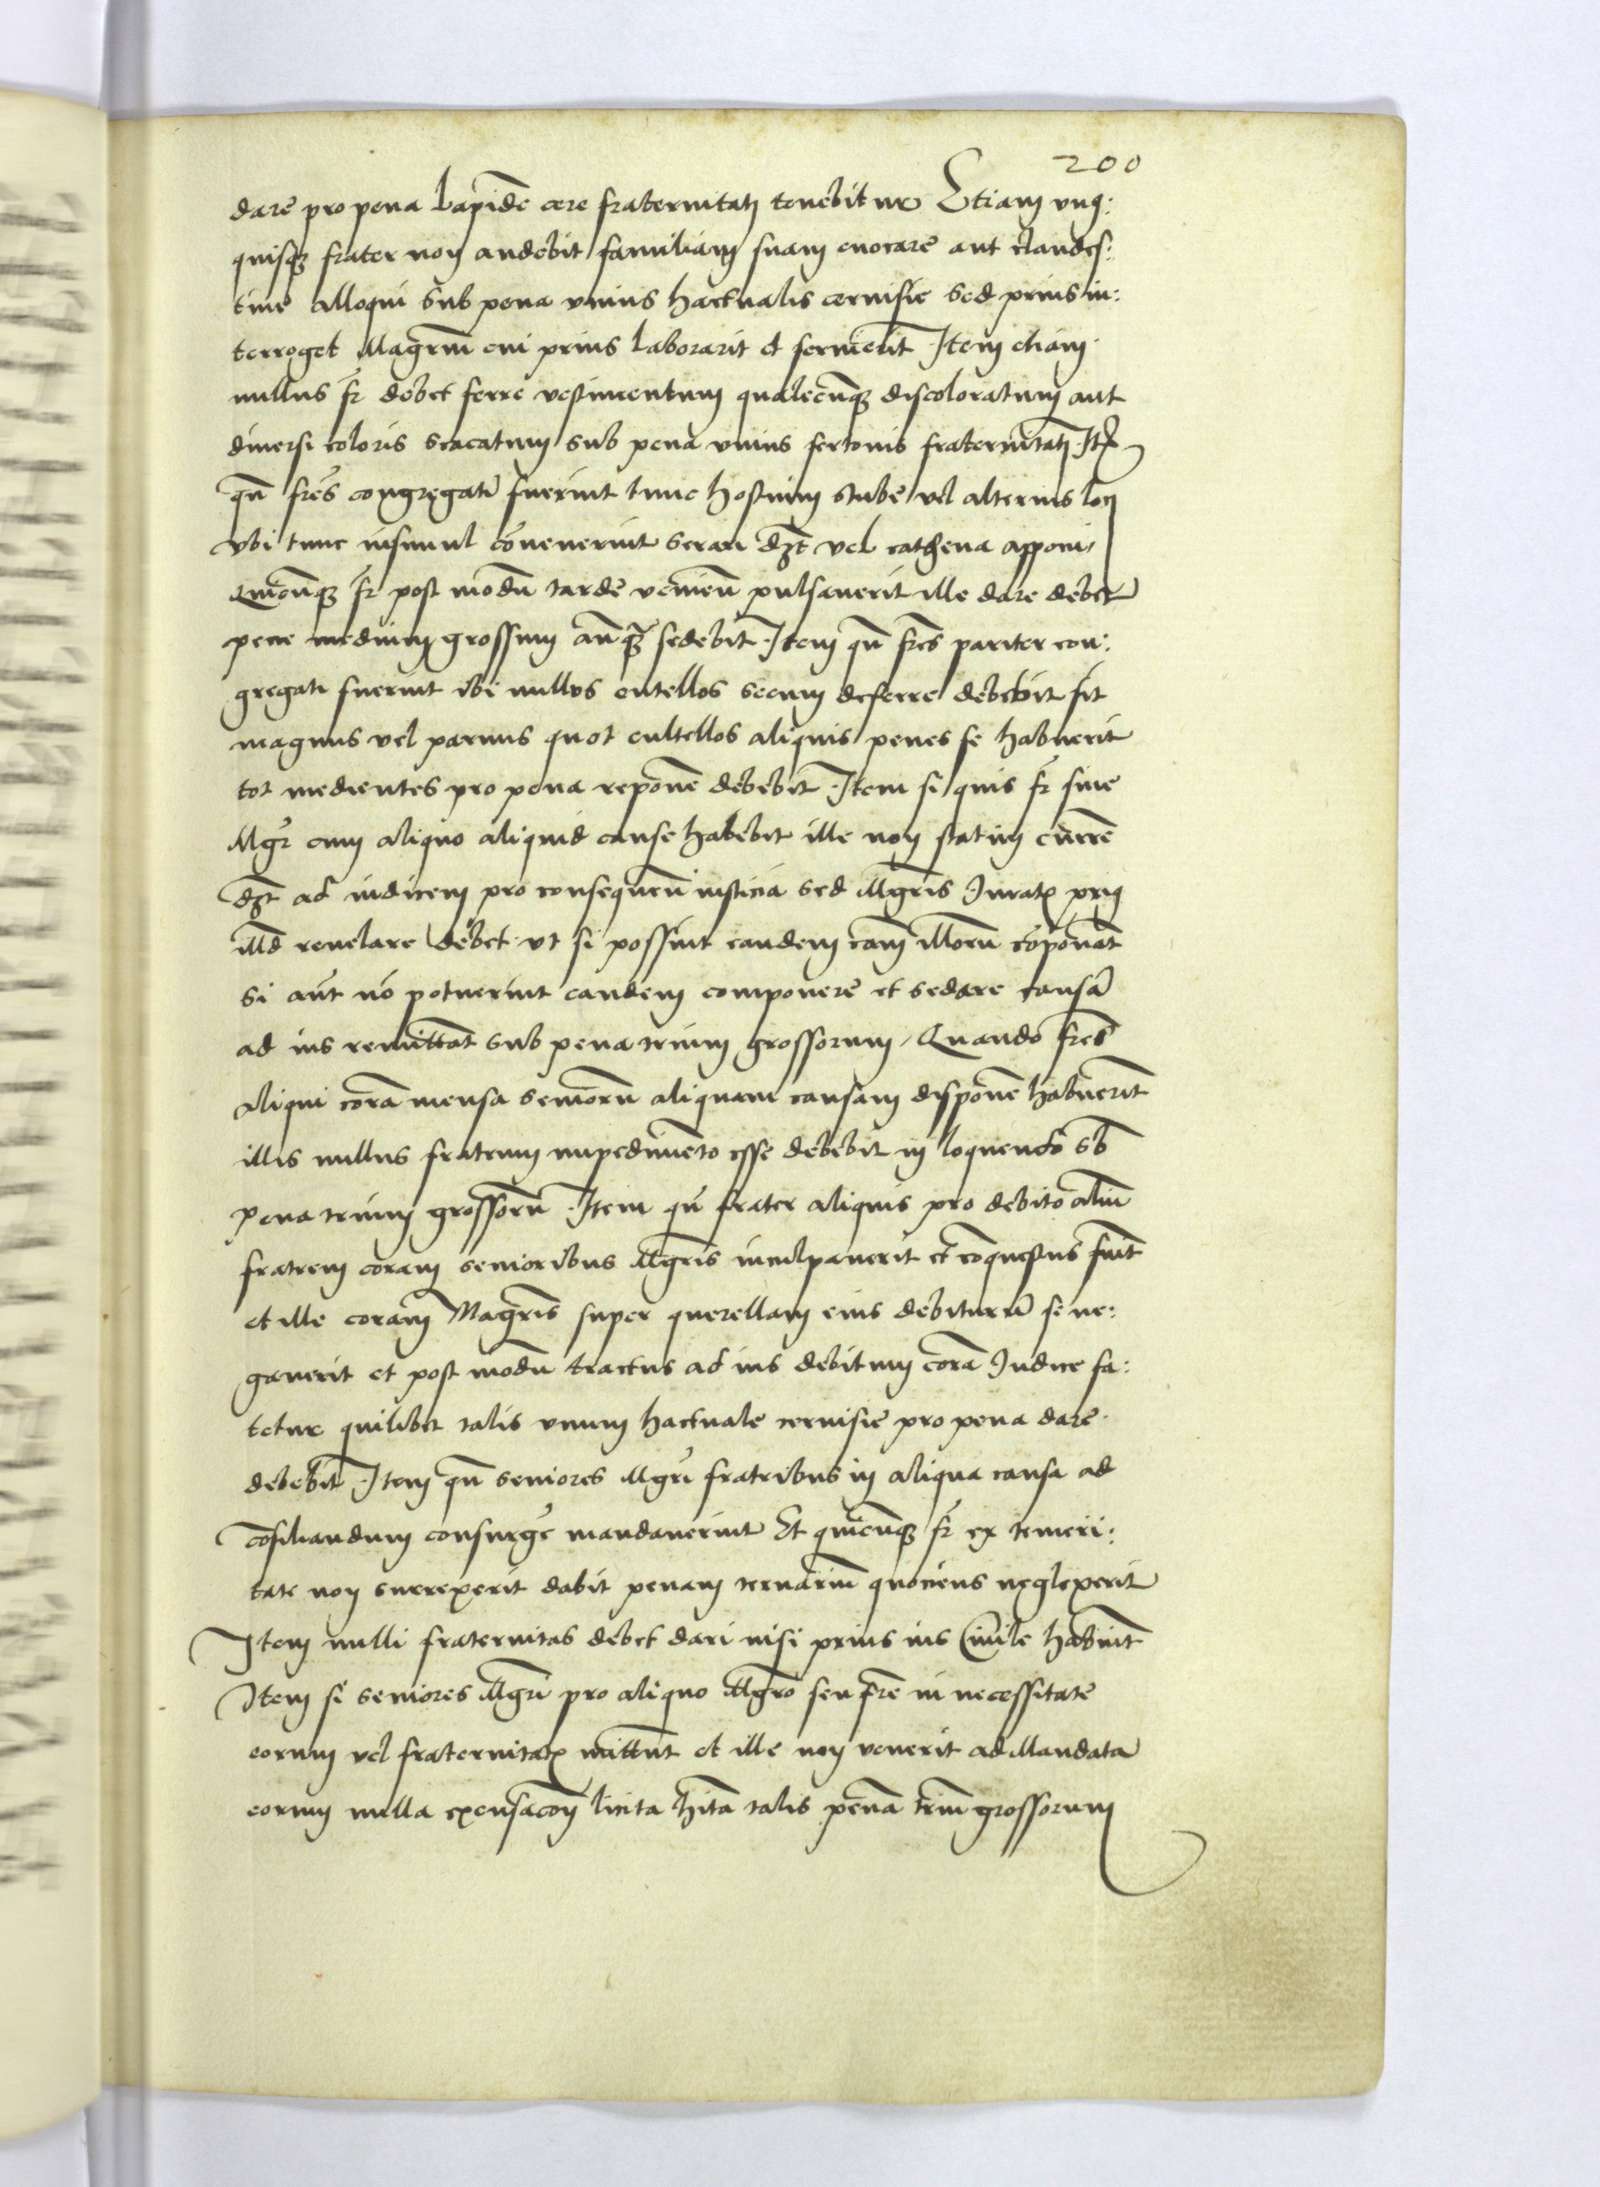 200
dare pro pena Lapidē cere fraternitatj tenebitur Etiam vnq:
quisqꝫ frater non audebit familiam suam euocare aut clandes:
tine alloqui sub pena vnius hactualis ceruisie sed prius in:
terroget Magrm̄ cui prius Laborarit et seruierit Item etiam
nullus fr̄ debet ferre vestimentum qualecunqꝫ discoloratum aut
diuersi coloris scacatum sub pena vnius fertonis fraternitatj Itē
qn̄ frēs congregati fuerint tunc hostium stube vel alterius locj
vbi tunc insimul cōuenerint serari dꝫt vel cathena apponi
Quicunqꝫ fr̄ post modū tarde venien̄ pulsauerit ille dare debet
pene medium grossum anq̄ꝫ sedebit Item qn̄ frēs pariter con:
gregati fuerint ibi nullus cutellos secum deferre debebit sit
magnus vel paruus quot cultellos aliquis penes se habuerit
tot medientes pro pena reponē debebit Item si quis fr̄ siue
Mgr̄ cum aliquo aliquid cause habebit ille non statim currē
dꝫt ad iudicem pro consequen̄ iusticia sed Mgrīs Iuratꝭ priꝰ
illd̄ reuelare debet vt si possint eandem cām illorū cōponāt
Si aūt nō potuerint eandem componere et sedare causā
ad ius remittāt sub pena trium grossorum / Quando frēs
aliqui corā mensa seniorū aliquam causam disponē habuerīt
illis nullus fratrum impedimēto esse debebit in loquendo sb̄
pena trium grossorū Item qn̄ frater aliquis pro debito aliū
fratrem coram senioribus Mgrīs inculpauerit et cōquestus fuīt
et ille coram Magrīs super querellam eius debiturū se ne:
gauerit et post modū tractus ad ius debitum corā Iudice fa:
tetur quilibet talis vnum hactuale ceruisie pro pena dare
debebit Item qn̄ seniores Mgrī fratribus in aliqua causa ad
cōsiliandum consurgē mandauerint Et quicunqꝫ fr̄ ex temeri:
tate non surrexerit dabit penam ternariū quociens neglexerit
Item nulli fraternitas debet dari nisi prius ius Ciuile habuīt
Item si seniores Mgrī pro aliquo Mgrō seu frē in necessitate
eorum vel fraternitatꝭ mittūt et ille non venerit ad Mandata
eorum nulla excusacōn licita hītā talis penā triū grossorum